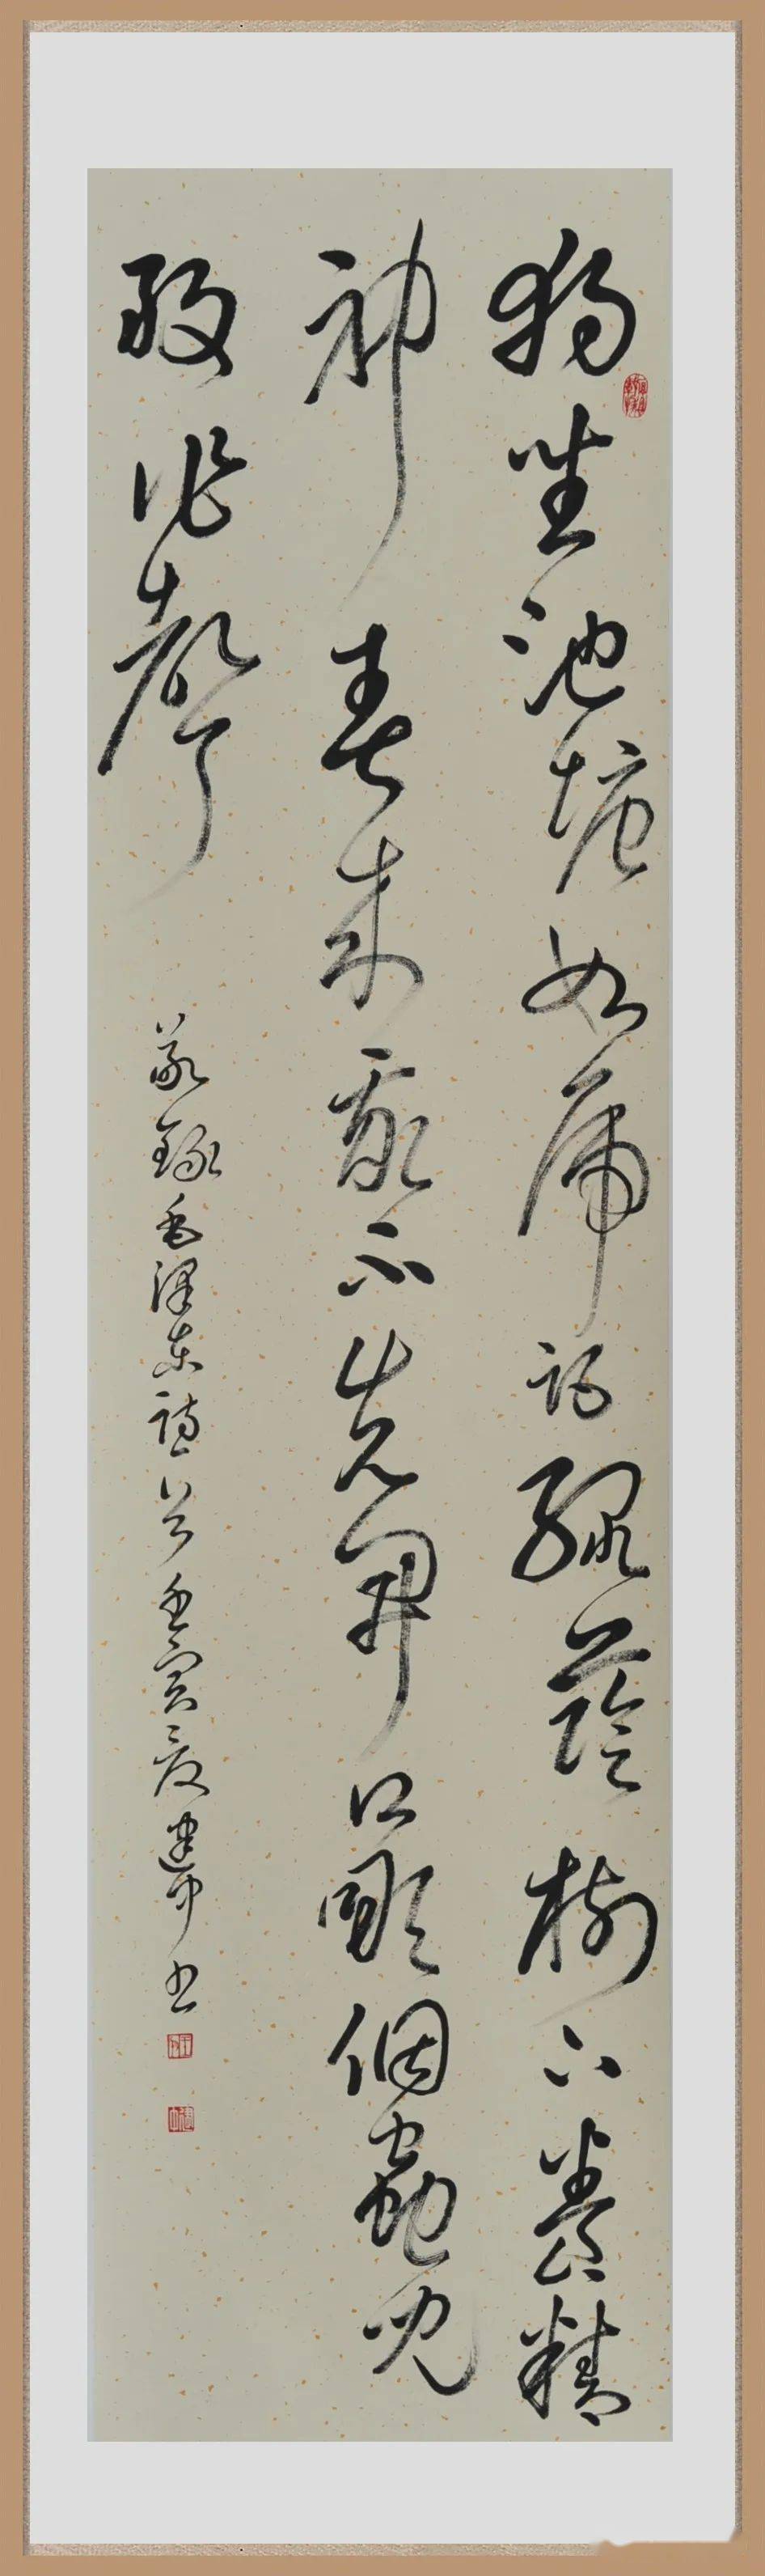 獨坐池塘如虎踞綠蔭樹下養精
神春來我不先開口哪個蟲兒
敢作聲
敬錄毛澤東詩一首壬寅夏建中书